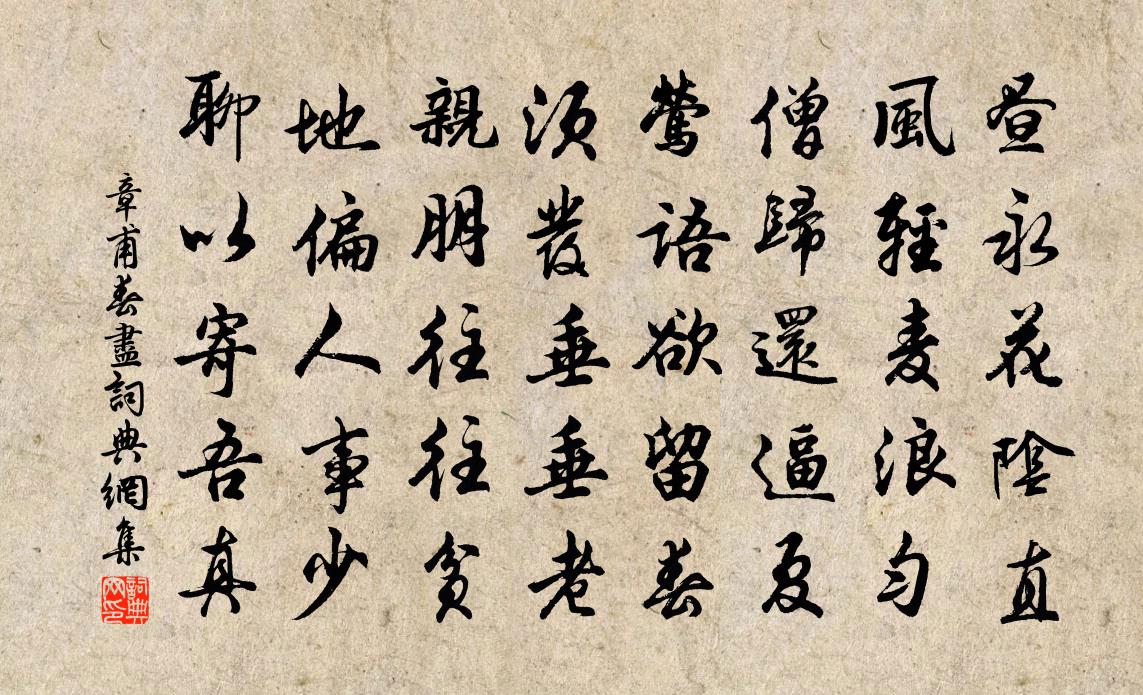 晝永花陰直
風輕麦浪勻
僧歸還逼夏
鶯語欲留春
須發垂垂老
親朋往往貧
地偏人事少
聊以寄吾真
章甫春盡詞典網集
詞典網印